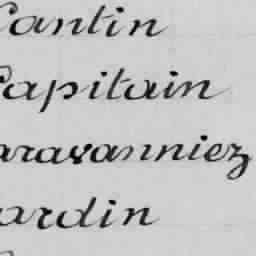 Cantin
Capitain
aravanniez
ardin